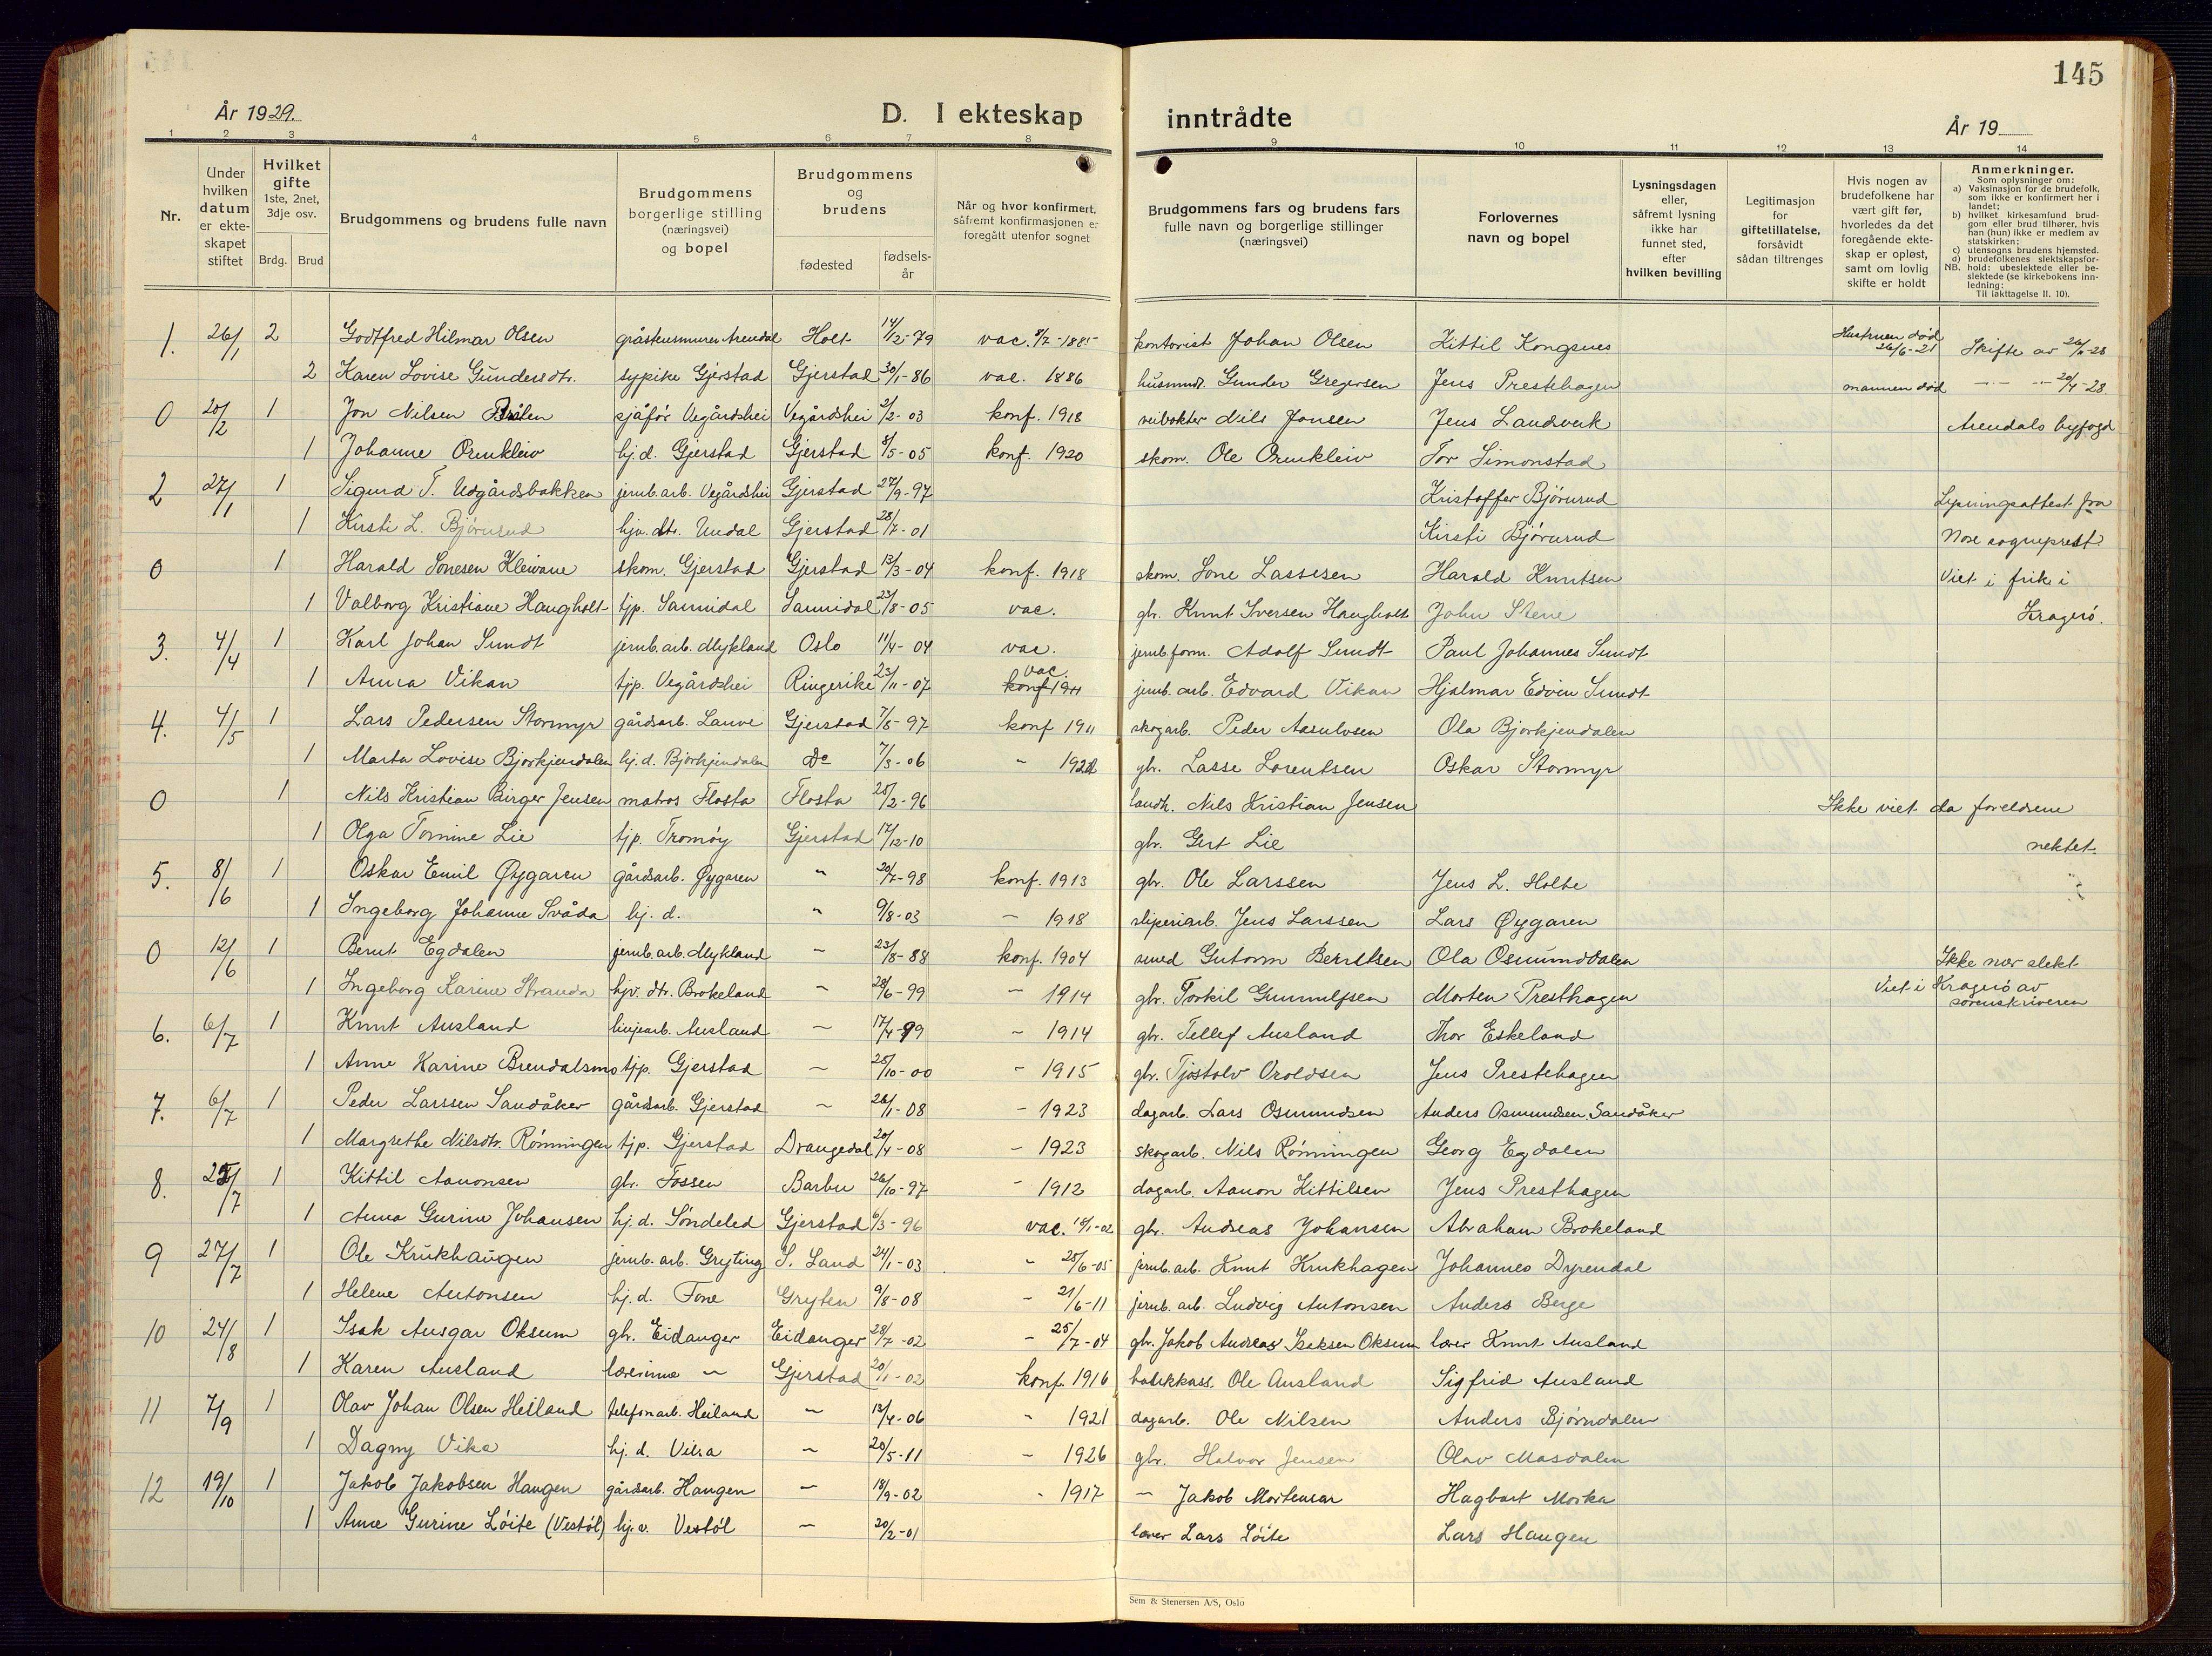 145
År 1929.
D. I ekteskap inntrådte
År 19
1 2 3 4 5 6 7 8 9 10 11 12 13 14
Nr.
Under hvilken datum er ekte-skapet stiftet
Hvilket gifte 1ste, 2net, 3dje osv.
Brdg. Brud
Brudgommens og brudens fulle navn
Brudgommens borgerlige stilling (næringsvei) og bopel
Brudgommens og brudens
fødested
fødsels-år
Når og hvor konfirmert, såfremt konfirmasjonen er foregått utenfor sognet
Brudgommens fars og brudens fars fulle navn og borgerlige stillinger (næringsvei)
Forlovernes navn og bopel
Lysningsdagen eller, såfremt lysning ikke har funnet sted, efter hvilken bevilling
Legitimasjon for giftetillatelse, forsåvidt sådan tiltrenges
Hvis nogen av brudefolkene har vært gift før, hvorledes da det foregående ekte-skap er opløst, samt om lovlig skifte er holdt
Anmerkninger.
Som oplysninger om:
a) Vaksinasjon for de brudefolk, som ikke er konfirmert her i landet;
b) hvilket kirkesamfund brud-gom eller brud tilhører, hvis han (hun) ikke er medlem av statskirken;
c) utensogns brudens hjemsted.
d) brudefolkenes slektskapsfor-hold: ubeslektede eller be-slektede (se kirkebokens inn-ledning:
NB.
Til iakttagelse II. 10).
1. 26/1 2 Godtfred Hilmar Olsen gråstensmurer Arendal Holt 14/12-79 vac. kontorist Johan Olsen Kittil Kongsnes Hustruen død 26/6-21 Skifte av
2 Karen Lovise Gundersdtr. sypike Gjerstad Gjerstad 30/1-86 vac. 1886 husmd. Gunder Gregersen Jens Prestehagen mannen død
0 20/2 1 Jon Nilsen Bråten sjåfør Vegårdshei Vegårdshei 2/2-03 konf. 1918 veivokter Nils Jonsen Jens Landverk Arendals byfogd
1 Johanne Ormkleiv hj.d. Gjerstad Gjerstad 8/5-05 konf. 1920 skom. Ole Ormkleiv Tor Simonstad
2 27/1 1 Sigurd T. Udgårdsbakken jernb.arb. Vegårdshei Gjerstad 27/9-97 Kristoffer Bjørurud Lysningsattest fra
1 Kirsti L. Bjørurud hjv. dtr. Undal Gjerstad 28/7-01 Kirsti Bjørurud sogneprest
0 1 Harald Sonesen Kleivane skom. Gjerstad Gjerstad 13/3-04 konf. 1918 skom. Sone Lassesen Harald Knutsen Viet i frik. i
1 Valborg Kristiane Haugholt tjp. Sannidal Sannidal 23/8-05 vac. gbr. Knut Iversen Haugholt John Stene Kragerø.
3. 4/4 1 Karl Johan Sundt jernb.arb. Mykland Oslo 11/4-04 vac. jernb.form. Adolf Sundt Paul Johannes Sundt
1 Anna Vikan tjp. Vegårdshei Ringerike 23/11-07 vac. jernb. arb. Edvard Vikan Hjalmar Edvin Sundt
4. 4/5 1 Lars Pedersen Stormyr gårdsarb. Lauve Gjerstad 7/5-97 konf 1911 skogarb. Peder Aasulvsen Ola Bjorkjendalen
1 Marta Lovise Bjorkjendalen hj.d. Bjorkjendalen Do 7/3-06 " gbr. Lasse Lorentsen Oskar Stormyr
0 1 Nils Kristian Birger Jensen matros Flosta Flosta 25/2-96 landh. Nils Kristian Jensen Ikke viet da foreldrene
1 Olga Tomine Lie tjp. Tromøy Gjerstad 17/12-10 gbr. Gert Lie nektet.
5. 8/6 1 Oskar Emil Øygaren gårdsarb. Øygaren " 20/7-98 konf. 1913 gbr. Ole Larssen Jens L. Holte
1 Ingeborg Johanne Svåda hj. d. " 9/8-03 - 1918 sliperiarb. Jens Larssen Lars Øygaren
0 12/6 1 Bernt Egdalen jernb.arb. Mykland - 23/8-88 konf. 1904 smed Gutorm Berntsen Ola Osmunddalen Ikke nær slekt
1 Ingeborg Karine Stranda hjv. dtr. Brokeland - 28/6-99 - 1914 gbr. Torkil Gunnulfsen Morten Presthagen Viet i Kragerø av sorenskriveren
6. 6/7 1 Knut Ausland linjearb. Ausland - 17/4-99 - 1914 gbr. Tellef Ausland Thor Eskeland
1 Anne Karine Brendalsmo tjp. Gjerstad - 25/10-00 - 1915 gbr. Tjostolv Oroldsen Jens Prestehagen
7. 6/7 1 Peder Larssen Sandåker gårdsarb. Gjerstad - 26/1-08 - 1923 dagarb. Lars Osmundsen Anders Osmundsen, Sandåker
1 Margrethe Nilsdtr. Rønningen tjp. Gjerstad Drangedal 20/4-08 - 1923 skogarb. Nils Rønningen Georg Egdalen
8. 25/7 1 Kittil Aanonsen gbr. Fossen Barbu 26/10-97 - 1912 dagarb. Aanon Kittilsen Jens Presthagen
1 Anna Gurine Johansen hj.d. Søndeled Gjerstad 6/3-96 vac. gbr. Andreas Johansen Abraham Brokeland
9 27/7 1 Ole Krukhaugen jernb. arb. Gryting S. Land 24/1-03 - 25/6-05 jernb.arb. Knut Krukhagen Johannes Dyrendal
1 Helene Antonsen hj.d. Fone Gryten 9/8-08 - 21/6-11 jernb. arb. Ludvig Antonsen Anders Berge
10 24/8 1 Isak Ansgar Oksum gbr. Eidanger Eidanger 28/7-02 - 25/7-04 gbr. Jakob Andreas Isaksen Oksum lærer Knut Ausland
1 Karen Ausland lærerinne - Gjerstad 20/1-02 konf. 1916 Ole Ausland Sigfrid Ausland
11 7/9 1 Olav Johan Olsen Heiland telefonarb. Heiland - 13/4-06 - 1921 dagarb. Ole Nilsen Anders Bjørndalen
1 Dagny Vika hj. d. Vika - 20/5-11 - 1926 gbr. Halvor Jensen Olav Masdalen
12 19/10 1 Jakob Jakobsen Haugen gårdsarb. Haugen - 18/9-02 - 1917 - Jakob Mortensen Hagbart Morka
1 Anne Gurine Løite (Vestøl) hj.v. Vestøl - 20/2-01 lærer Lars Løite Lars Haugen
Sem & Stenersen A/S, Oslo